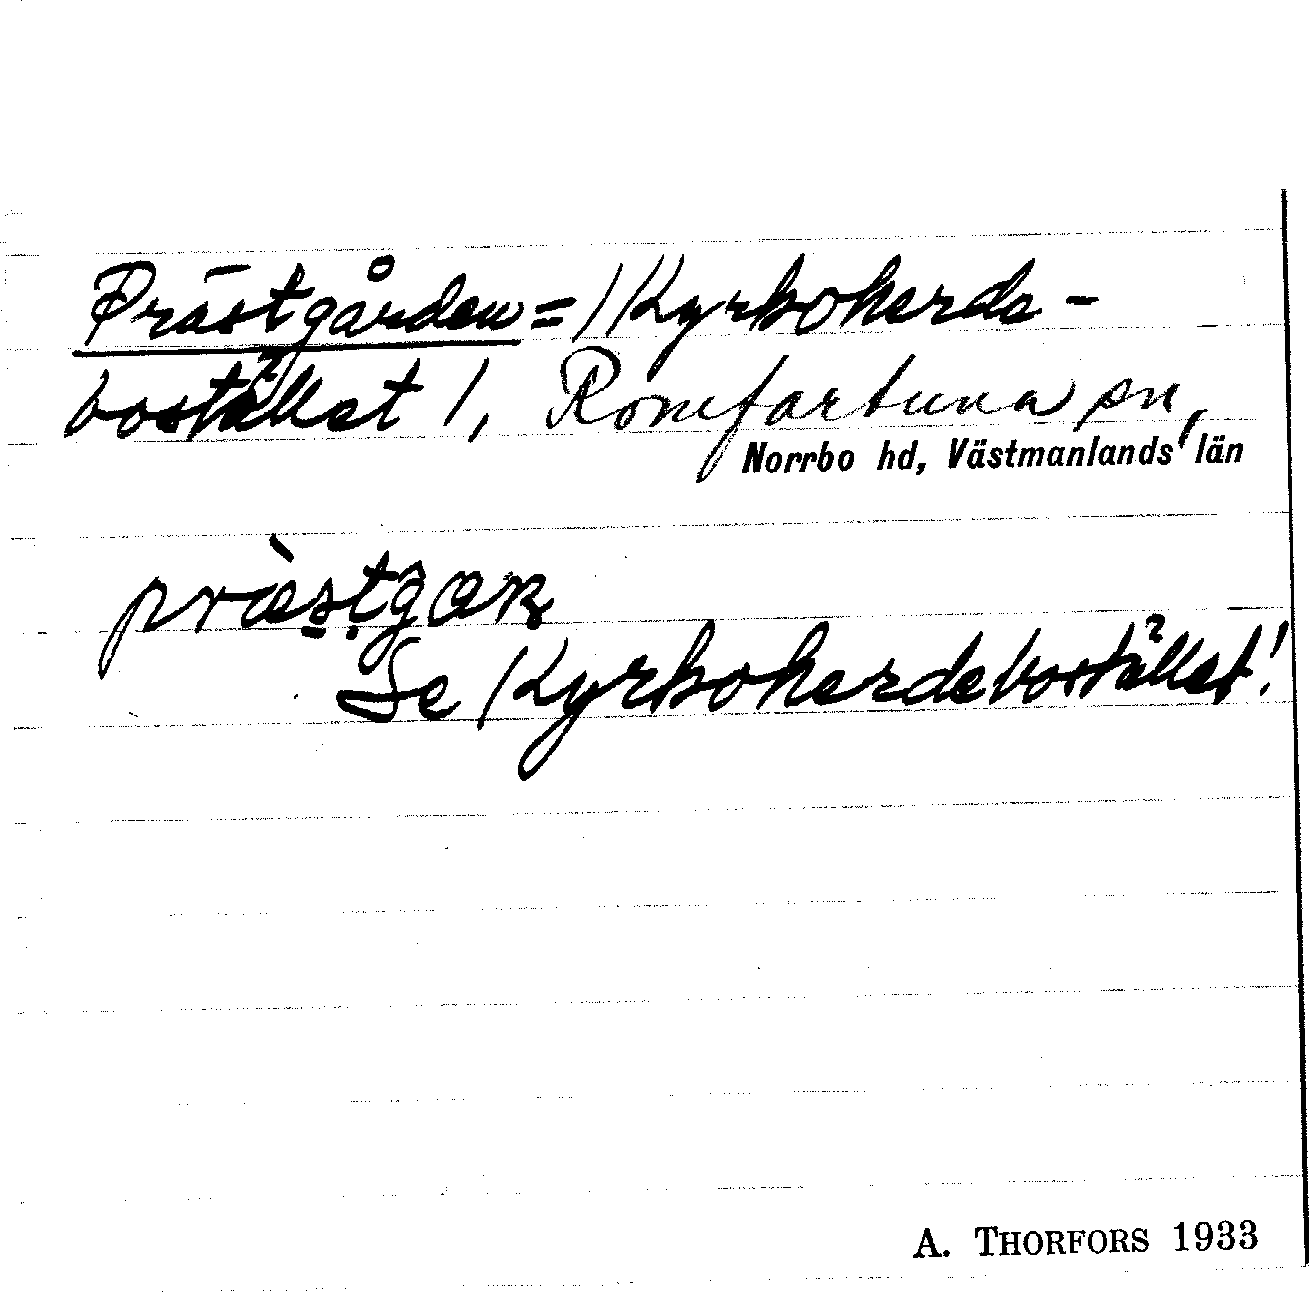 Prästgården = /Kyrkoherde-
bostället /, Romfartuna sn,
Norrbo hd, Västmanlands län
præ̀s̱ṭgaɳ
Se Kyrkoherdebostället!
A. THORFORS 1933